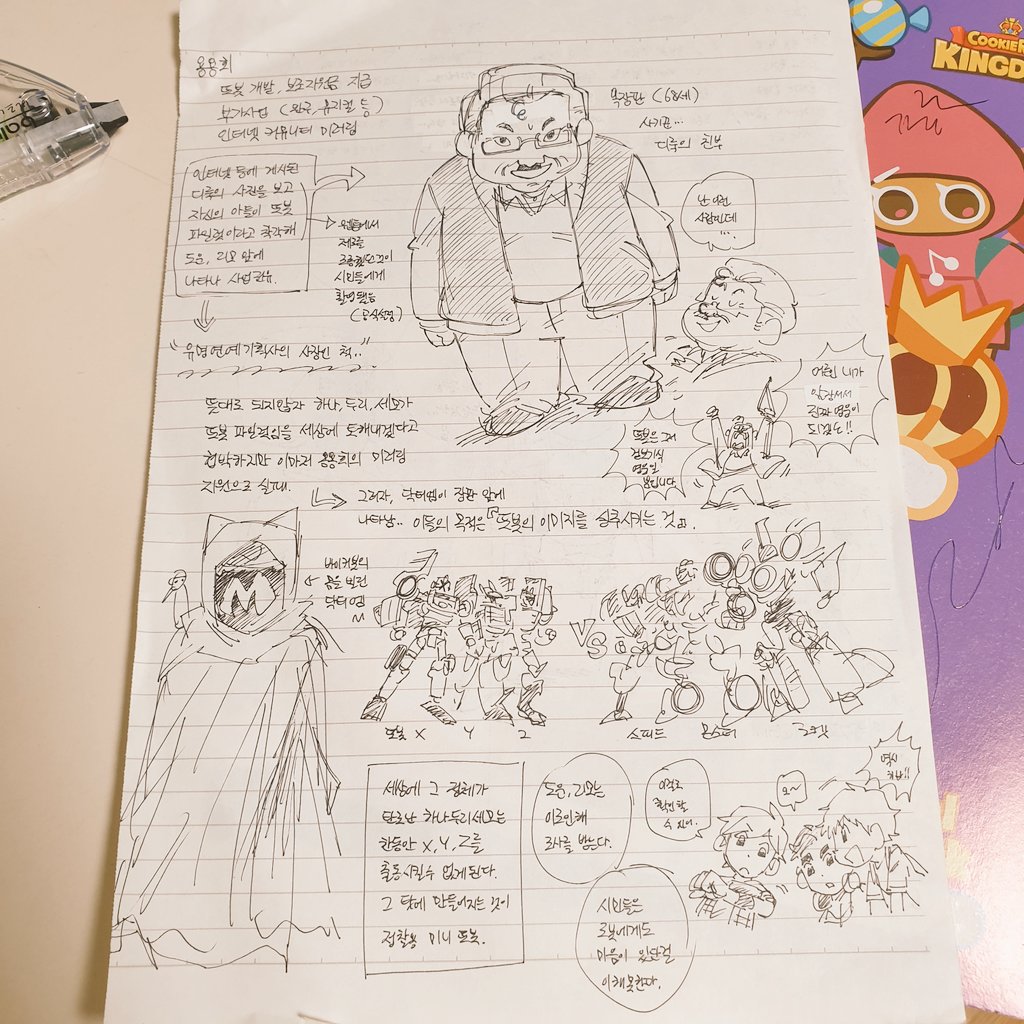 용용회
또봇 개발, 보조자원금 지급
부가사업 (완구, 뮤지컬 등)
인터넷 커뮤니티 미러링
인터넷 등에 게시된
디룩의 사진을 보고
자신의 아들이 또봇
파일럿이라고 착각해
도운, 리모 앞에
나타나 사업권유.
제로를
시민들에게
(공식설정)
"유명연예기획사의 사장인 척.."
뜻대로 되지않자 하나, 두리, 세모가
또봇 파일럿임을 세상에 토해내겠다고
협박하지만 이마저 용용회의 미러링
지원으로 실패.
그러자, 닥터엠이 장판 앞에
나타남.. 이들의 목적은 『또봇의 이미지를 실추시키는 것』.
옥장판 (68세)
사기꾼...
디룩의 친부
난 이런
사람인데
...
어휴 내가
앞장서서
진짜 영웅이
되겠소!!
또봇은 그저
겉보기식
영웅일
뿐입니다
바이커봇의
몸을 빌린
닥터엠
M
VS
또봇 X Y Z
스피드 몬스터 로켓
세상에 그 정체가
탄로난 하나두리세모는
한동안 X, Y, Z를
출동시킬수 없게된다.
그 탓에 만들어지는 것이
정찰용 미니 또봇.
도운, 리모는
이로인해
조사를 받는다.
시민들은
로봇에게도
마음이 있단걸
이해못한다.
이걸로
확인할
수 있어.
오~
역시
COOKIE
KINGD